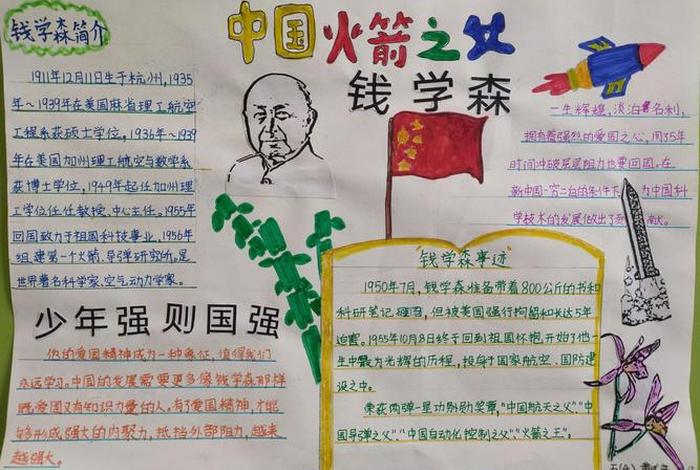 中国火箭之父
钱学森
钱学森简介
1911年12月11日生于杭州,1935
年~1939年在美国麻省理工航空
工程系获硕士学位,1936年~1939
年在美国加州理工航空与数学系
获博士学位,1949年起任加州理
工学位任任教授、中心主任。1955年
回国致力于祖国科技事业,1956年
组建第一个火箭、导弹研究所。是
世界著名科学家、空气动力学家。
一生辉煌,淡泊名利,
拥有着强烈的爱国之心,用35年
时间冲破层层阻力也要回国,在
新中国一穷二白的条件下,为中国科
学技术的发展做出了献。
少年强则国强
他的爱国精神成为一种象征,值得我们
永远学习。中国的发展需要更多像钱学森那样
既爱国又有知识力量的人,有了爱国精神,才能
够形成强大的内聚力,抵挡外部阻力,越来
越强大。
"钱学森事迹"
1950年7月,钱学森准备带着800公斤的书和
科研笔记回,但被美国强行拘留和长达5年
迫害。1955年10月8日终于回到祖国怀抱,开始了他一
生中最为光辉的历程,投身于国家航空、国防建
设之中。
荣获两弹一星功勋勋奖章,"中国航天之父""中
国导弹之父""中国自动化控制之父""火箭之王"。